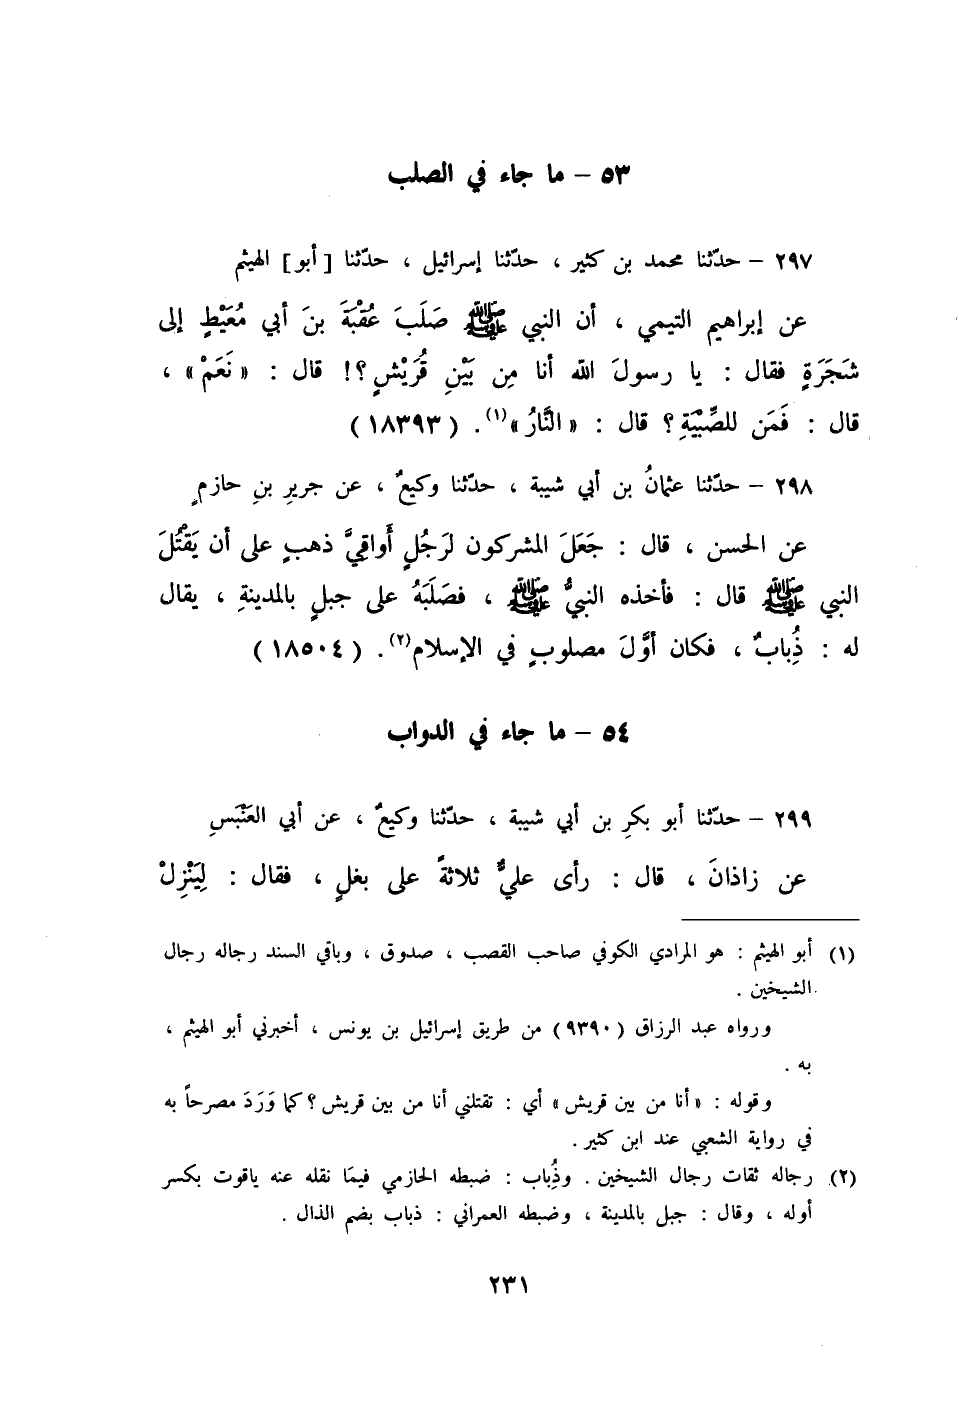 ٥٣ – ما جاء في الصلب
٢٩٧ – حدّثنا محمد بن كثير ، حدّثنا إسرائيل ، حدّثنا [ أبو ] الهيثم
عن إبراهيم التيمي ، أن النبي ﷺ صَلَبَ عُقْبَةَ بنَ أبي مُعَيْطٍ إلى
شَجَرَةٍ فقال : يا رسولَ الله أنا مِن بَيْنِ قُرَيْشٍ؟! قال : « نَعَمْ » ،
قال : فَمَن للصِّبْيَةِ ؟ قال : « النَّارُ »(١) . ( ١٨٣٩٣ )
٢٩٨ – حدّثنا عثمانُ بن أبي شيبة ، حدّثنا وكيعٌ ، عن جريرِ بنِ حازمٍ
عن الحسن ، قال : جَعَلَ المشركون لرَجُلٍ أَواقِيَّ ذهبٍ على أن يَقْتُلَ
النبي ﷺ قال : فأخذه النبيُّ ﷺ ، فصَلَبَهُ على جبلٍ بالمدينةِ ، يقال
له : ذُِبابٌ ، فكان أوَّلَ مصلوبٍ في الإسلام(٢) . ( ١٨٥٠٤ )
٥٤ – ما جاء في الدواب
٢٩٩ – حدّثنا أبو بكرِ بن أبي شيبة ، حدّثنا وكيعٌ ، عن أبي العَنْبَسِ
عن زاذانَ ، قال : رأى عليٌّ ثلاثةً على بغلٍ ، فقال : لِيَنْزِلْ
(١) أبو الهيثم : هو المرادي الكوفي صاحب القصب ، صدوق ، وباقي السند رجاله رجال
الشيخين .
ورواه عبد الرزاق ( ٩٣٩٠ ) من طريق إسرائيل بن يونس ، أخبرني أبو الهيثم ،
به .
وقوله : « أنا من بين قريش » أي : تقتلني أنا من بين قريش ؟ كما وَرَدَ مصرحاً به
في رواية الشعبي عند ابن كثير .
(٢) رجاله ثقات رجال الشيخين . وذُِباب : ضبطه الحازمي فيمَا نقله عنه ياقوت بكسر
أوله ، وقال : جبل بالمدينة ، وضبطه العمراني : ذباب بضم الذال .
٢٣١